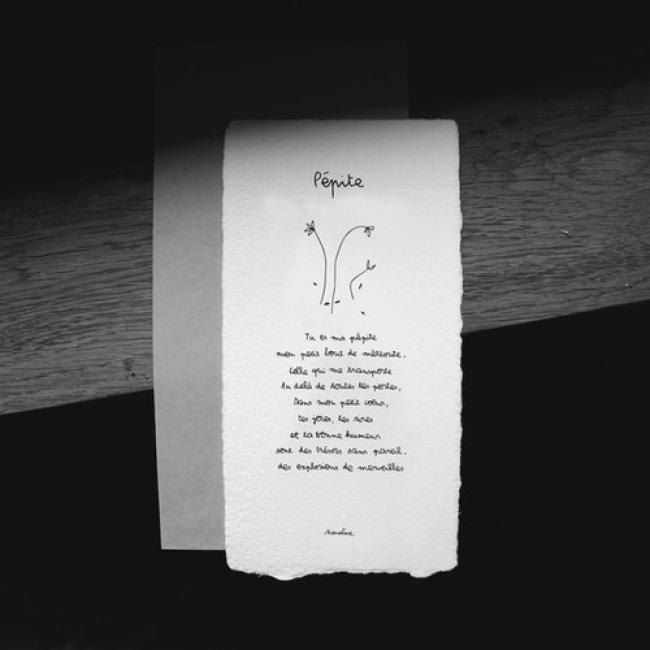 Pépite
Tu es ma pépite
mon petit bout de météorite.
Celle qui me transporte
Au delà de toutes les portes,
Dans mon petit cœur,
tes joies, tes rires
et ta bonne humeur
sont des trésors sans pareil.
des explosions de merveilles